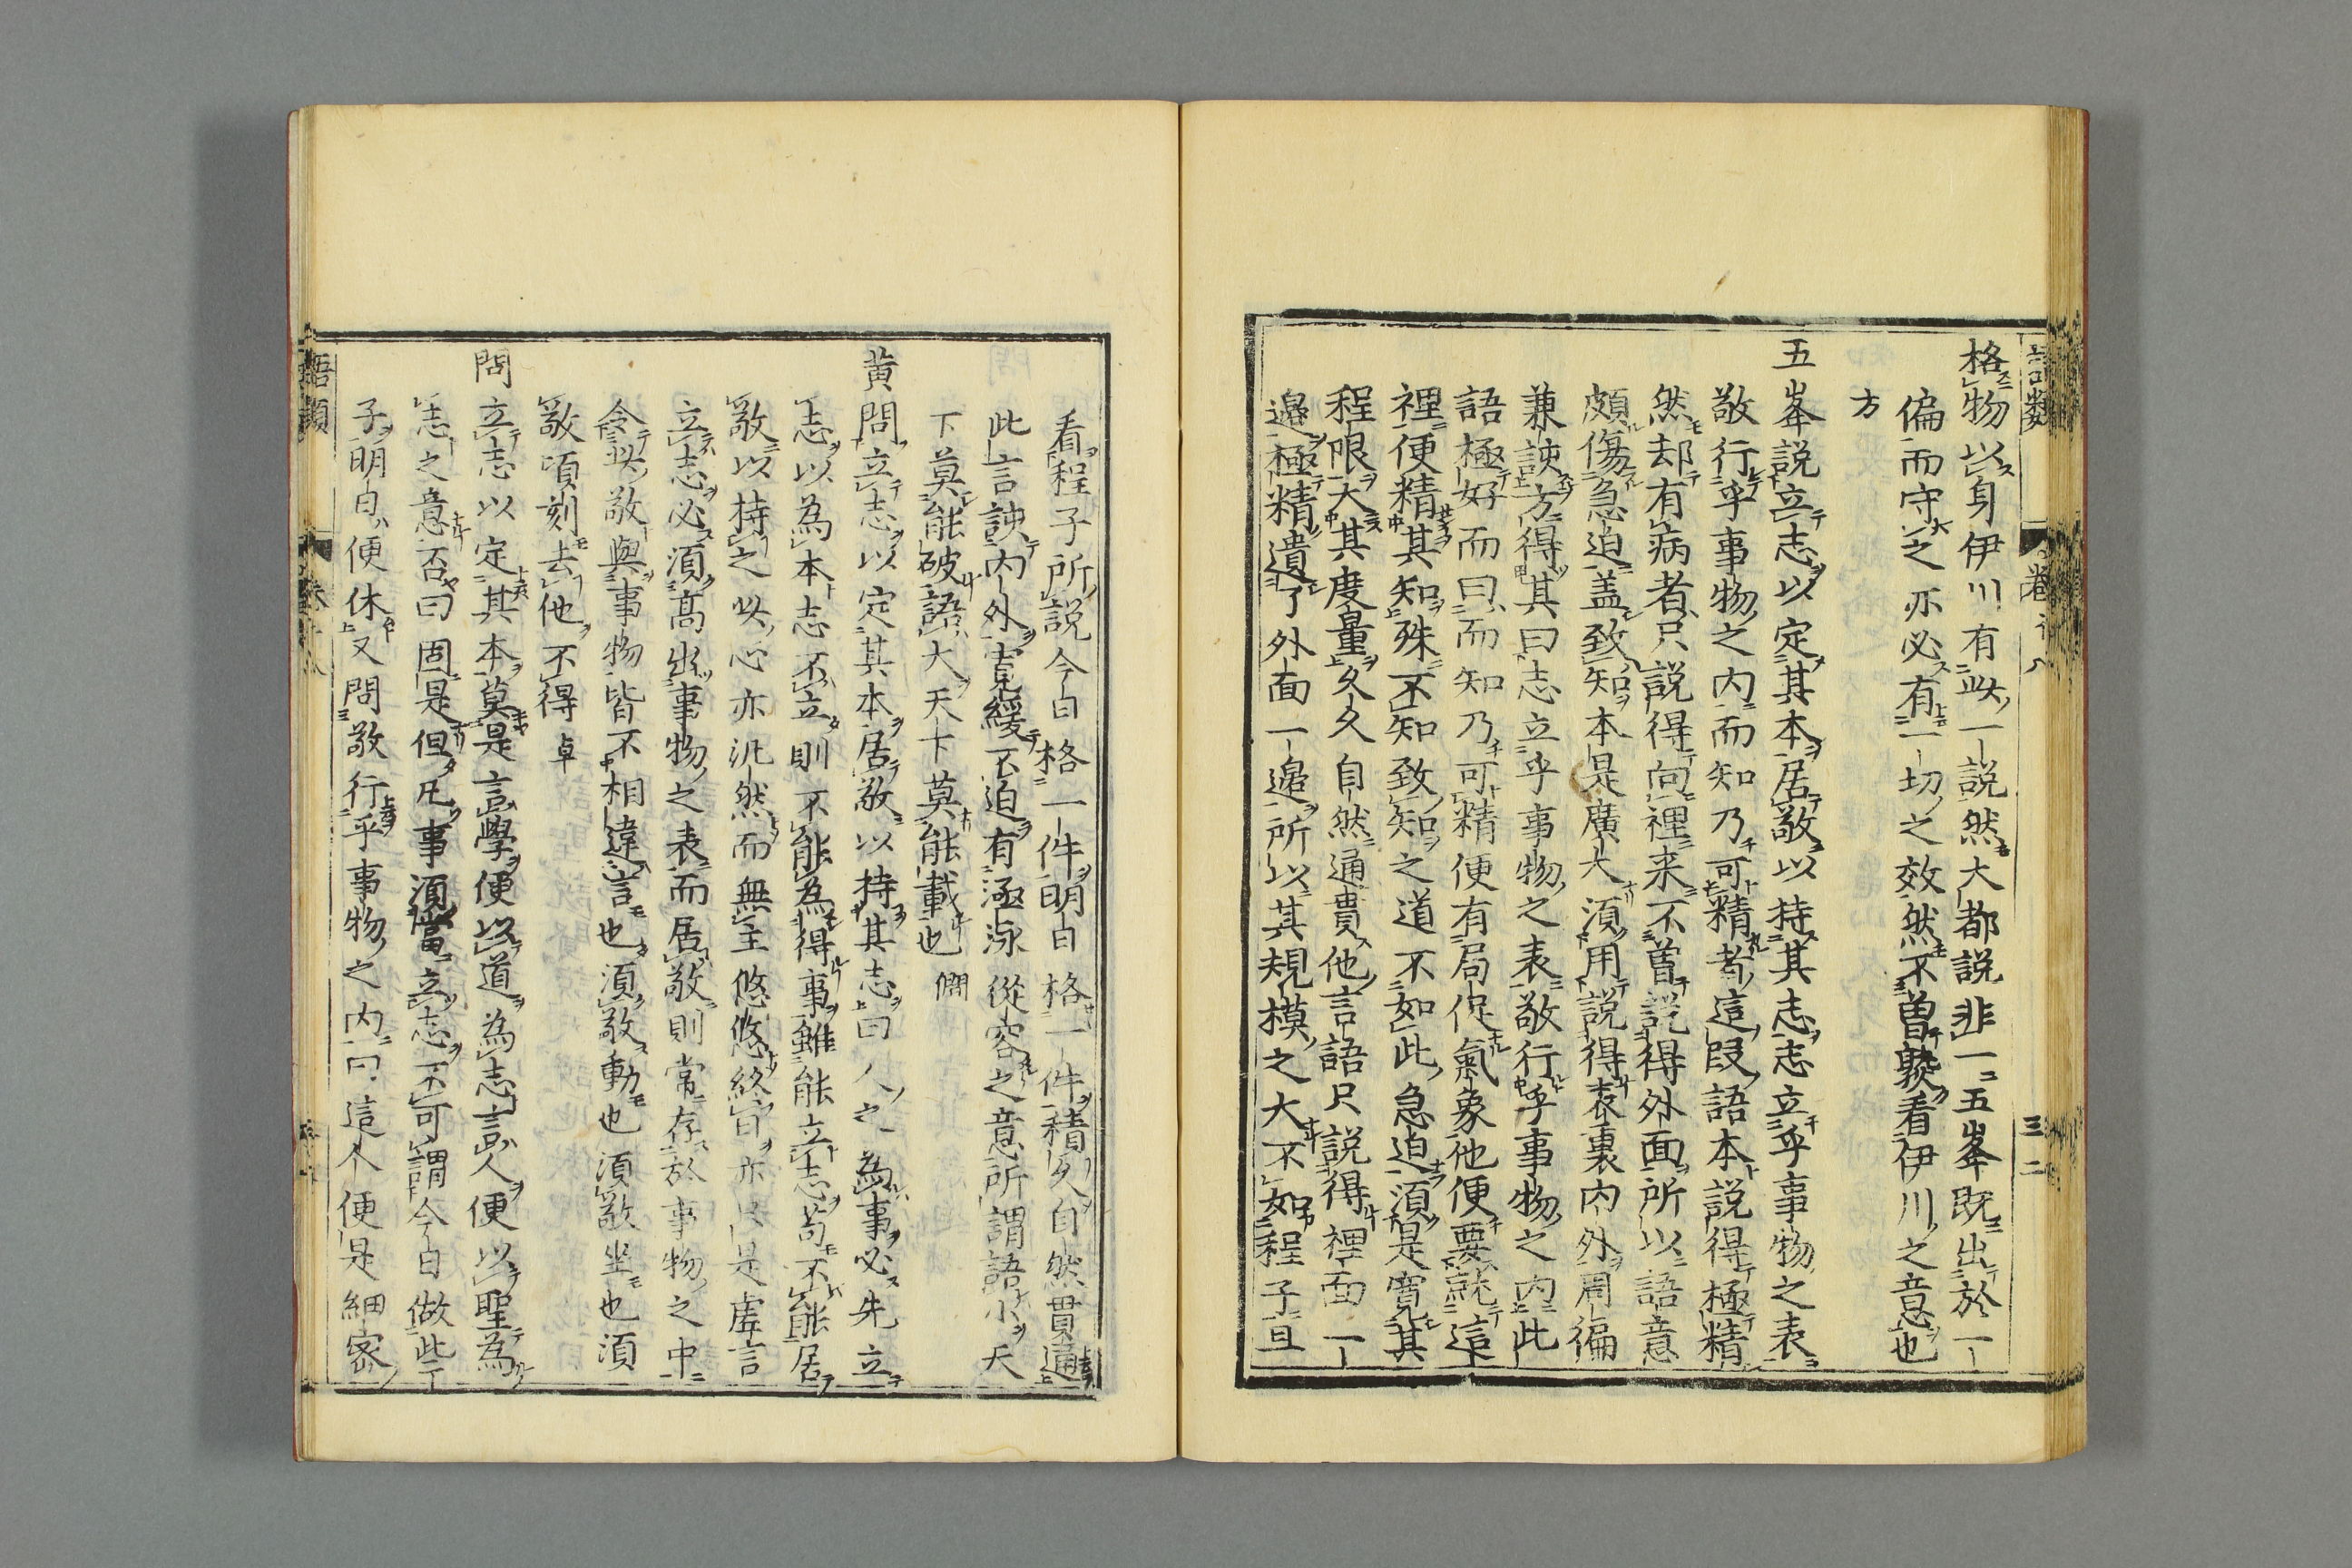 格物以身伊川有此一說然大都說非一五峯既出於一
偏而守之亦必有一切之效然不曾熟看伊川之意也
方
五峯說立志以定其本居敬以持其志志立乎事物之表
敬行乎事物之内而知乃可精者這段語本說得極精
然却有病者只說得向裡来不曾說得外面所以語意
頗傷急迫盖致知本是廣大須用說得表裏内外周徧
兼該方得其曰志立乎事物之表敬行乎事物之内此
語極好而曰而知乃可精便有局促氣象他便要就這
裡便精其知殊不知致知之道不如此急迫須是寬其
程限大其度量久久自然通貫他言語只說得裡面一
邉極精遺了外面一邉所以其規模之大不如程子且
看程子所說今日格一件明日格一件積久自然貫通
此言該内外寬緩不迫有涵泳從容之意所謂語小天
下莫能破語大天下莫能載也 僩
黄問立志以定其本居敬以持其志曰人之為事必先立
志以為本志不立則不能為得事雖能立志苟不能居
敬以持之此心亦汎然而無主悠悠終日亦只是虚言
立志必須高出事物之表而居敬則常存於事物之中
令此敬與事物皆不相違言也須敬動也須敬坐也須
敬頃刻去他不得 卓
問立志以定其本莫是言學便以道為志言人便以聖為
志之意否曰固是但凡事須當立志不可謂今日做此一
子明日便休又問敬行乎事物之内曰這个便是細密
語類
卷十八
三二